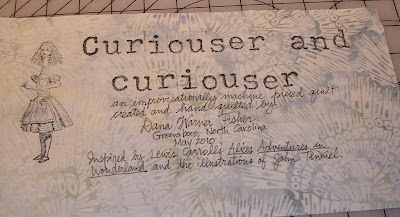 Curiouser and
curiouser
an improvisationally machine pieced quilt
created and hand quilted by
Dana Warner Fisher
Greensboro, North Carolina
May 2010
Inspired by Lewis Carroll's Alice's Adventures in
Wonderland and the illustrations of John Tenniel.